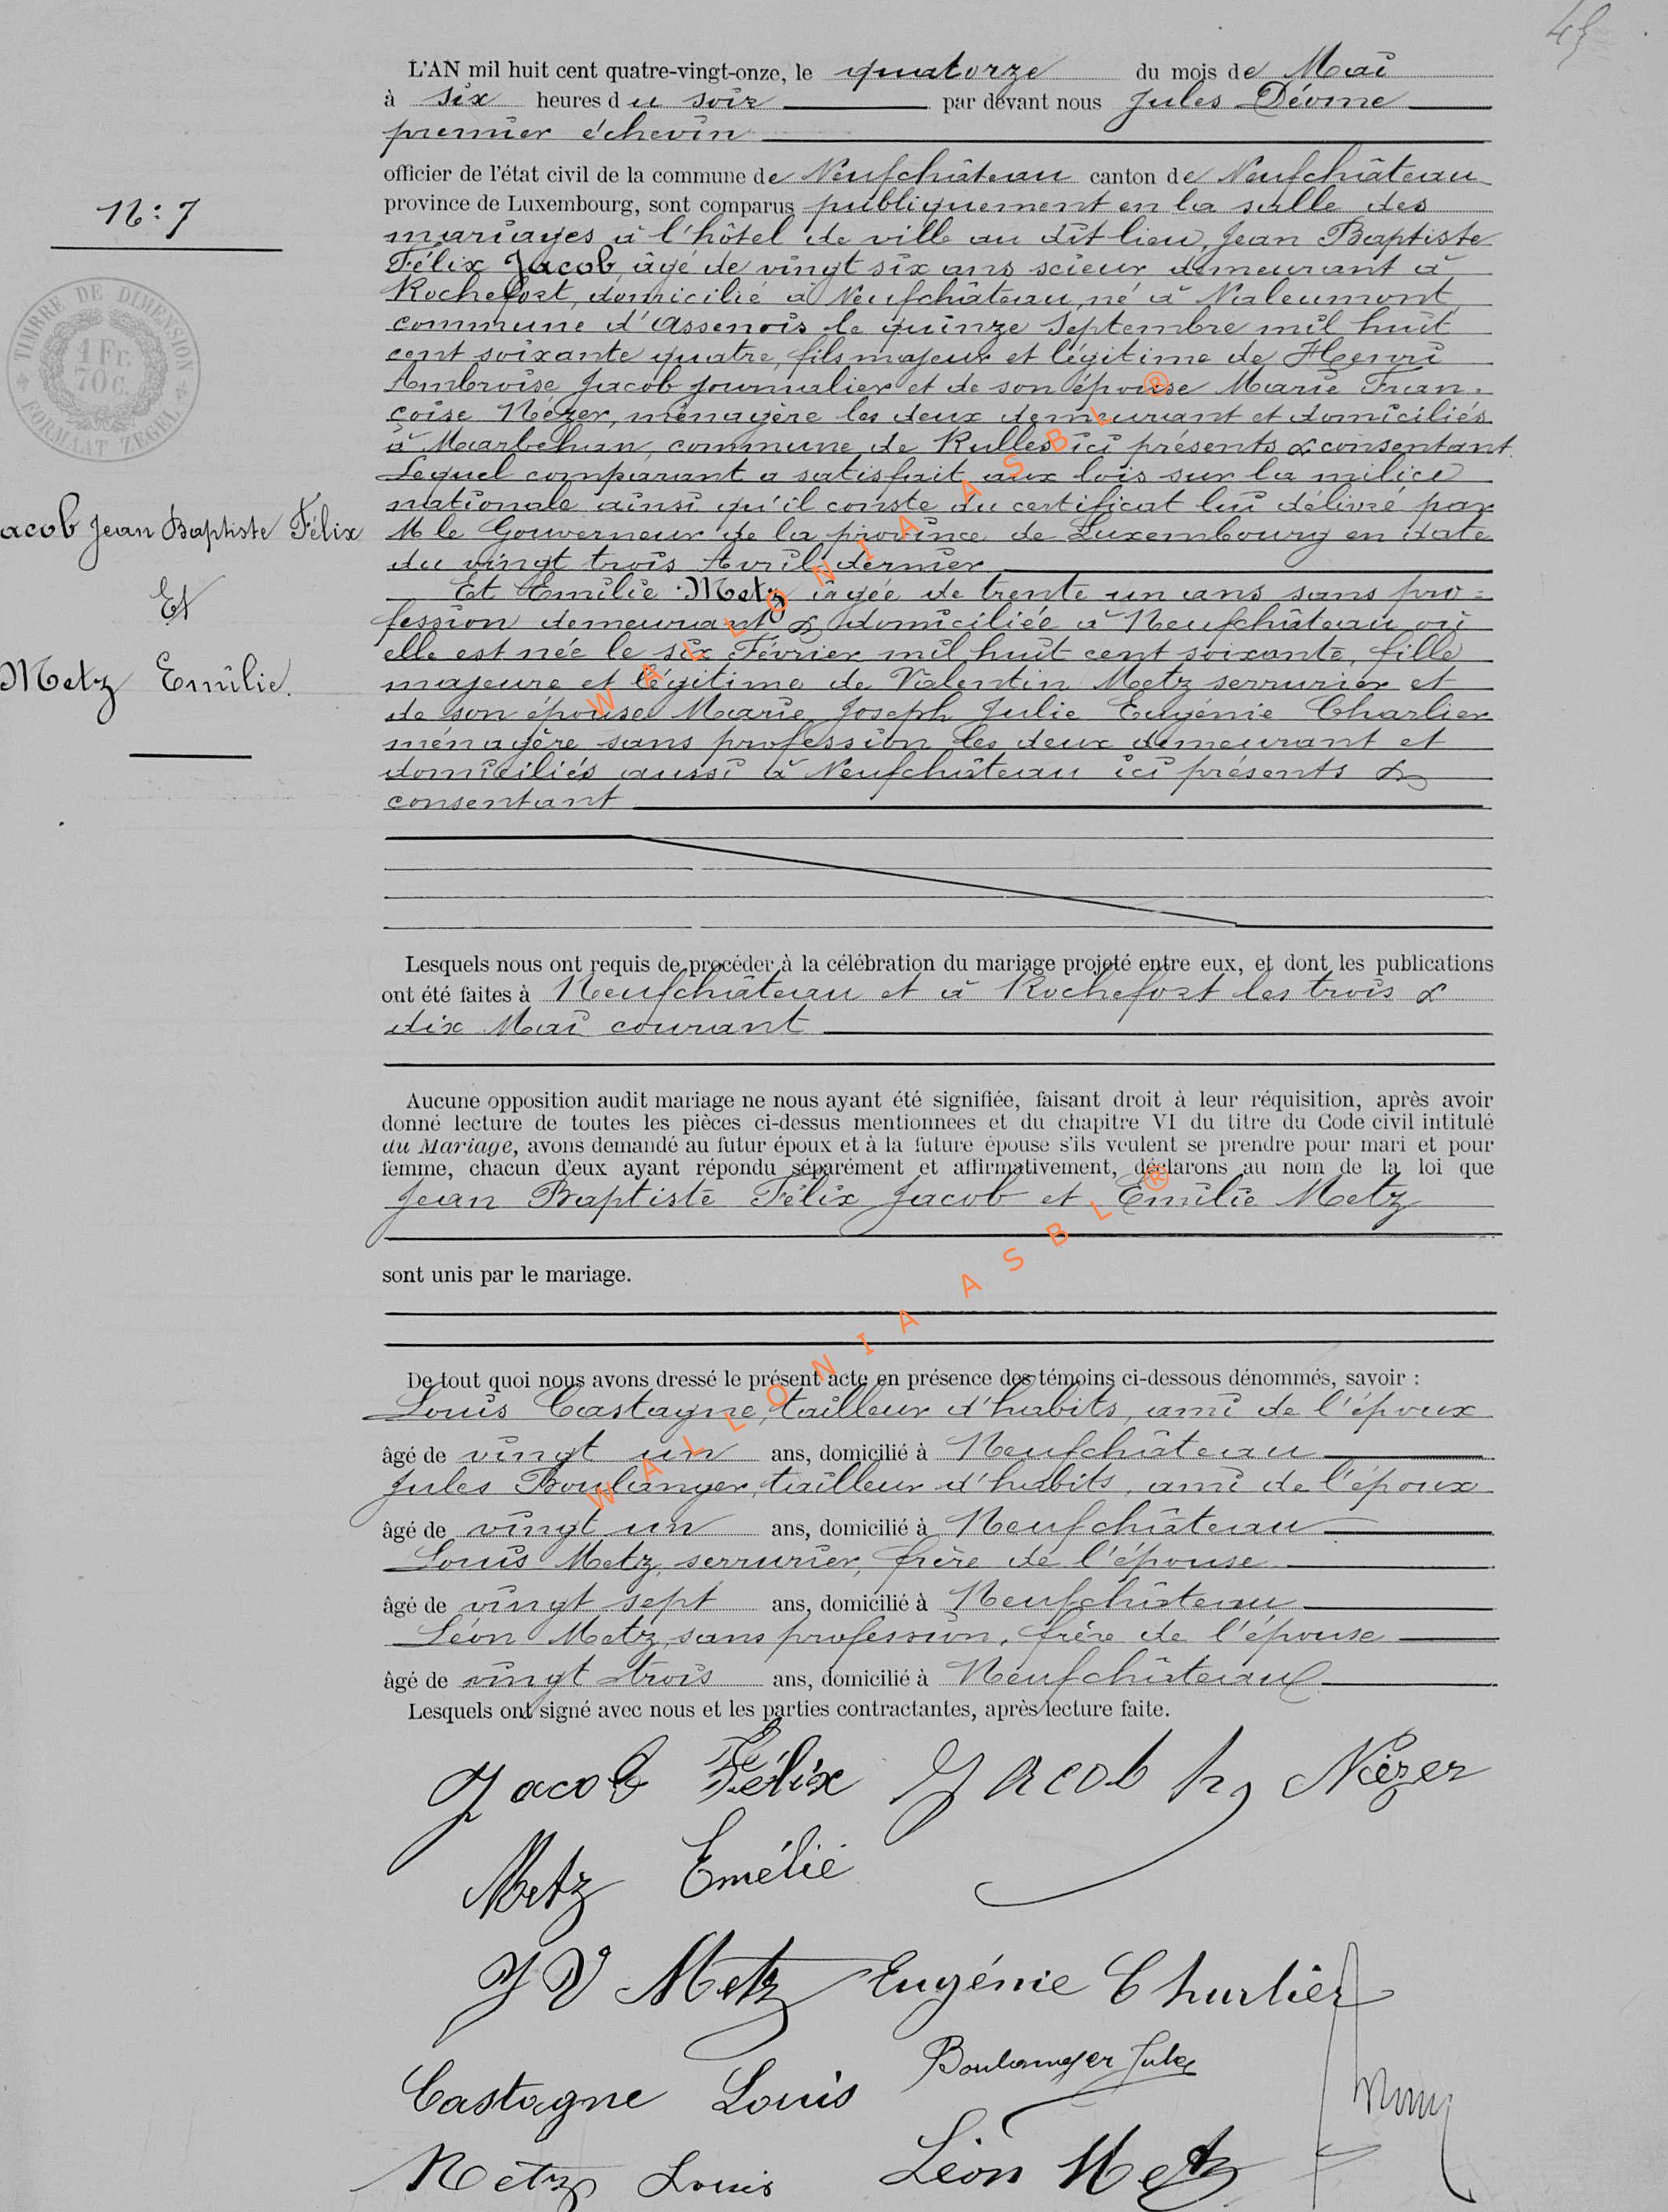 L'AN mil huit cent quatre-vingt-onze, le quatorze du mois de Mai
à six heures du soir par devant nous Jules
premier échevin
officier de l'état civil de la commune de Neufchâteau canton de Neufchâteau
province de Luxembourg, sont comparus publiquement en la salle des
mariages à l'hôtel de ville au dit lieu, Jean Baptiste
Félix Jacob, âgé de vingt six ans scieur demeurant à
Rochefort, domicilié à Neufchâteau, né à Naleumont,
commune d'Assenois le quinze Septembre mil huit
cent soixante quatre, fils majeur et légitime de Henri
Ambroise Jacob journalier et de son épouse Marie Fran-
çoise Nézer, ménagère les deux demeurant et domiciliés
à Marbehan, commune de Rulles ici présents & consentant.
Lequel comparant a satisfait aux lois sur la milice
nationale ainsi qu'il conste du certificat lui délivré par
M le Gouverneur de la province de Luxembourg en date
du vingt trois Avril dernier
Et Emilie Metz âgée de trente un ans sans pro=
fession demeurant & domiciliée à Neufchâteau où
elle est née le six Février mil huit cent soixante, fille
majeure et légitime de Valentin Metz serrurier et
de son épouse Marie Joseph Julie Eugénie Charlier
ménagère sans profession les deux demeurant et
domiciliés aussi à Neufchâteau ici présents &
consentant
N: 7
TIMBRE DE DIMENSION
1 Fr.
70 c.
FORMAAT ZEGEL
acob Jean Baptiste Félix
Et
Metz Emilie.
Lesquels nous ont requis de procéder à la célébration du mariage projeté entre eux, et dont les publications
ont été faites à Neufchâteau et à Rochefort les trois &
dix Mai courant
Aucune opposition audit mariage ne nous ayant été signifiée, faisant droit à leur réquisition, après avoir
donné lecture de toutes les pièces ci-dessus mentionnees et du chapitre VI du titre du Code civil intitulé
du Mariage, avons demandé au futur époux et à la future épouse s'ils veulent se prendre pour mari et pour
femme, chacun d'eux ayant répondu séparément et affirmativement, déclarons au nom de la loi que
Jean Baptiste Félix Jacob et Emilie Metz
sont unis par le mariage.
De tout quoi nous avons dressé le présent acte en présence des témoins ci-dessous dénommés, savoir :
Louis Castagne, tailleur d'habits, ami de l'époux
âgé de vingt un ans, domicilié à Neufchâteau
Jules Boulanger, tailleur d'habits, ami de l'époux
âgé de vingt un ans, domicilié à Neufchâteau
Louis Metz, serrurier, frère de l'épouse
âgé de vingt sept ans, domicilié à Neufchâteau
Léon Metz, sans profession, frère de l'épouse
âgé de vingt trois ans, domicilié à Neufchâteau
Lesquels ont signé avec nous et les parties contractantes, après lecture faite.
Jacob Félix Jacob h, Nézer
Metz Emélie
J V Metz Eugénie Charlier
Boulanger Jules
Castagne Louis
Metz Louis Léon Metz
WALLONIA ASBL ®
WALLONIA ASBL ®